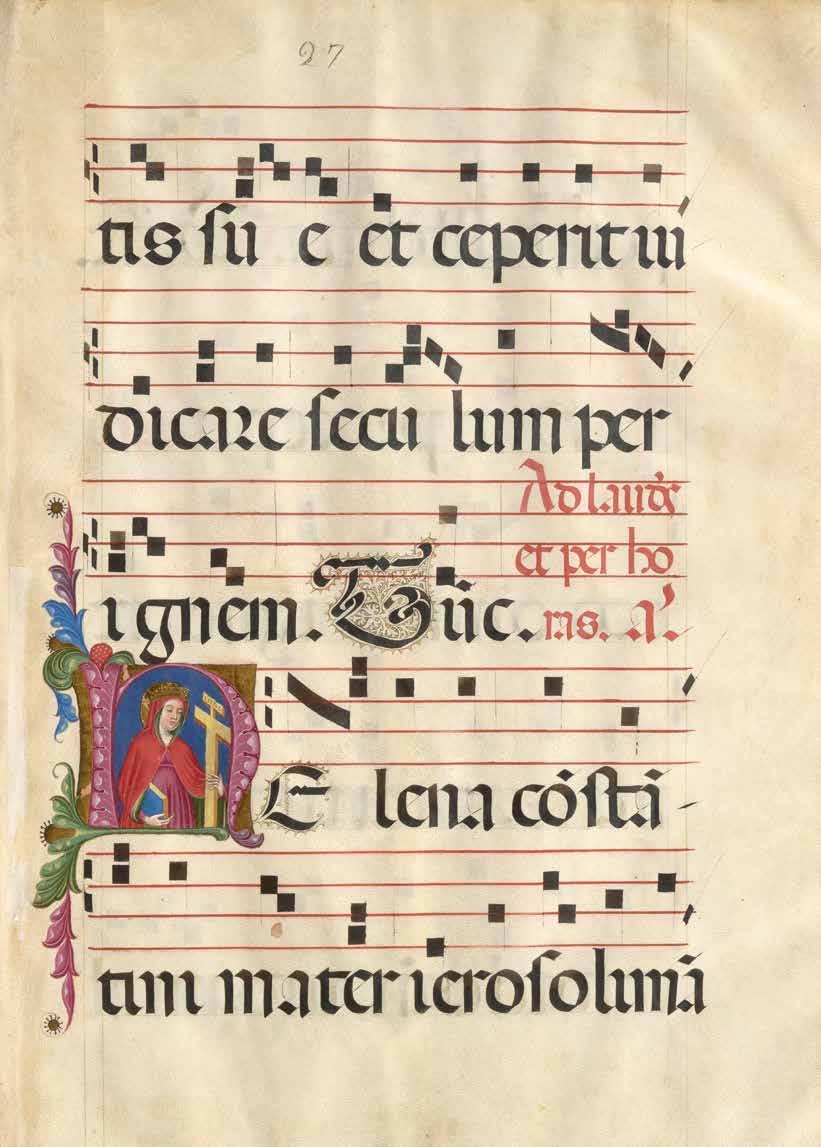 27
tis su e et ceperit iu
dicare secu lum per
Ad laudes
et per ho
i gnem. Tūc. ras. A'.
HE lena cōstā-
tini mater ierosolimā